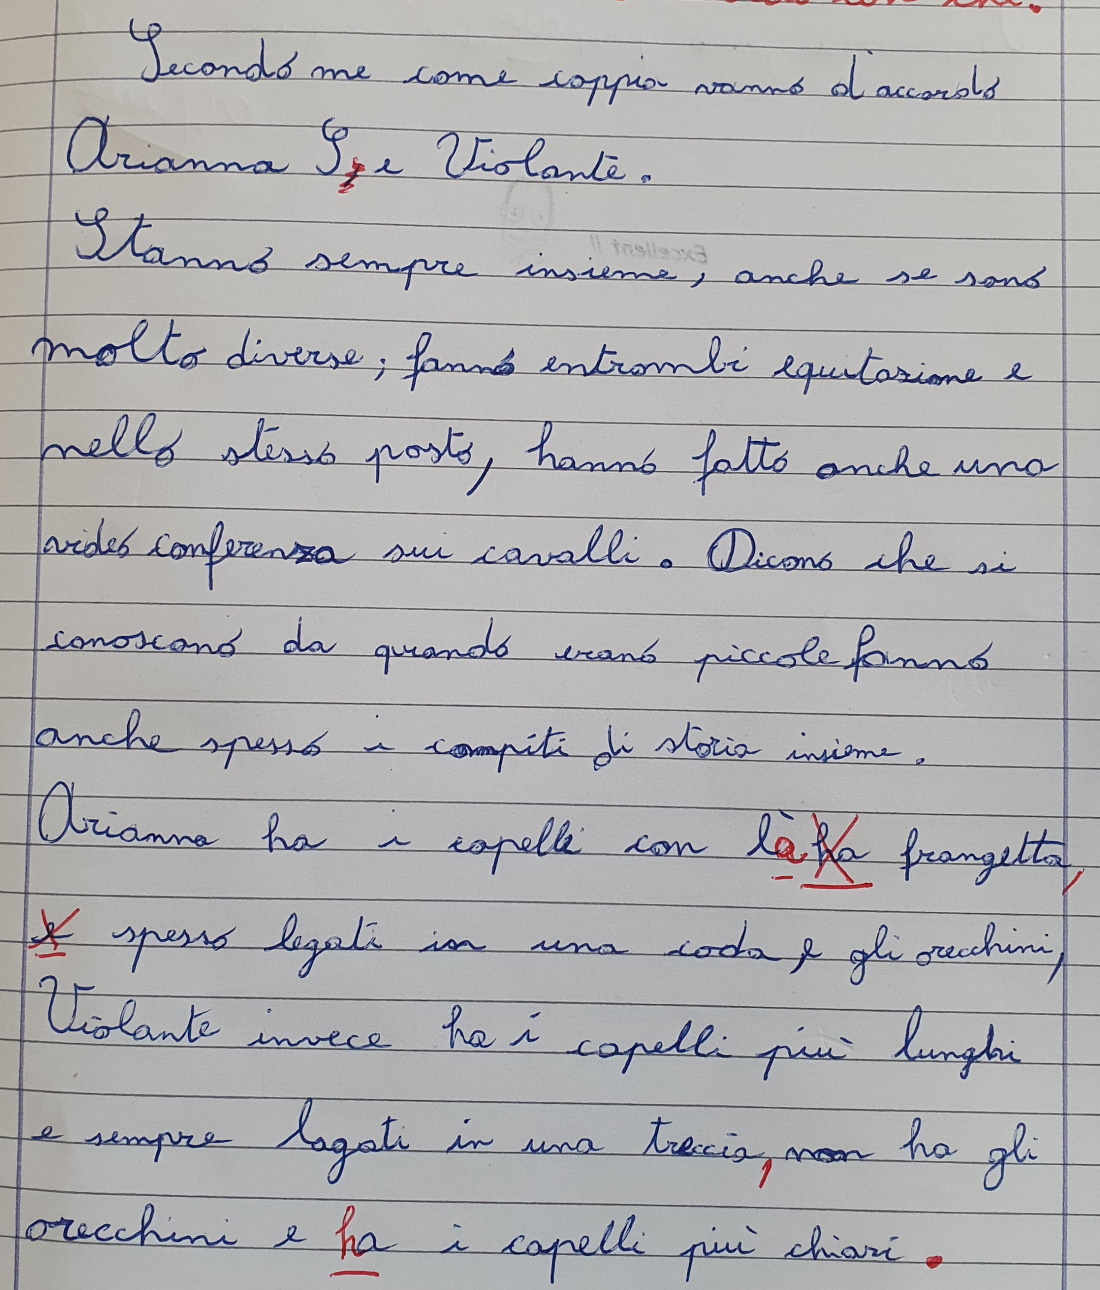 Secondo me come coppia vanno d'accordo
Arianna S. e Violante.
Excellent !!
Stanno sempre insieme, anche se sono
molto diverse; fanno entrambi equitazione e
nello stesso posto, hanno fatto anche una
video conferenza sui cavalli. Dicono che si
conoscono da quando erano piccole fanno
anche spesso i compiti di storia insieme.
Arianna ha i capelli con là frangetta,
spesso legati in una coda e gli orecchini,
Violante invece ha i capelli più lunghi
e sempre lagati in una treccia, non ha gli
orecchini e ha i capelli più chiari.